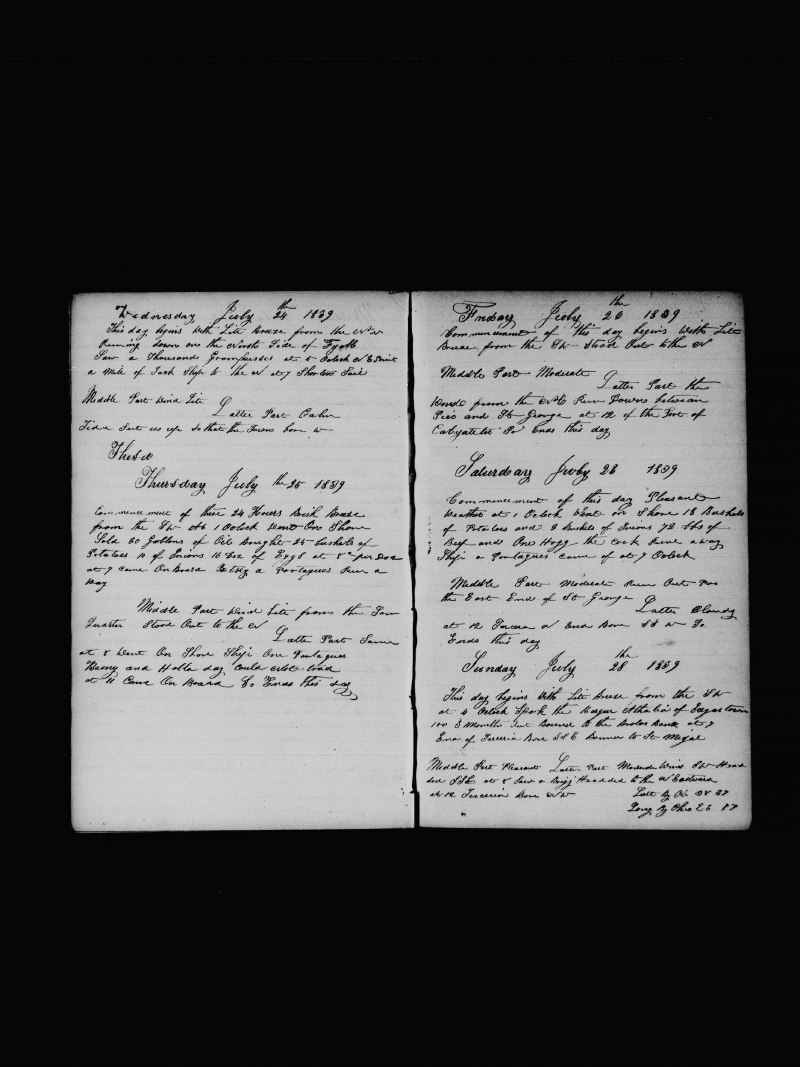 Wednesday July 24th 1839
This day begins With Lite Breeze from the
Running down on the North Side of
Saw a Thousand Grampusses at 5 Oclock
a Mile of Land Ships to the N at 7 Shorten Sail
Middle Part Wind Lite
Latter Part Calm
Tide Set us up So that the bore W
Thusd
Thursday July th 25 1839
Commencement of these 24 Hours Brisk Breeze
from the SW At 1 Oclock Went On Shore
Sold 60 Gallons of Oil Bought 25 Buskets of
Potatoes 12 of Inions 16 Doz of Eggs at 8 c per Doz
at 7 came On Board a Portagues Run a
way
Middle Part Wind Lite from the Sam
Quarter Stood Out to the N
Latter Part Same
at 8 Went On Shore Ship One Portagues
Being and Holla day Could Not trad
at 11 Came On Board So Ends this day
Friday July 26th 1839
Commencement of this day begins With Lite
Breeze from the SW Stood Out to the N
Middle Part Moderate
Latter Part the
Winds from the Run Down between
Pico and St George at 12 of the Port of
So Ends this day
Saturday July 26 1839
Commencement of this day Pleasant
Weather at 1 Oclock Went on Shore 18 Buskets
of Potatoes and 2 Buskets of Inions 72 lbs of
Beef and One Hogg the Cook Rune away
Ship a Portagues came of at 7 Oclock
Middle Part Moderate Run Out Pas
the East End of St George
Latter Cloudy
at 12 Tercera N End Bore SS W So
Ends this day
Sunday July 28th 1839
This day begins With Lite breeze from the SW
at 4 Oclock Spok the Barque Athalia of Edgartown
100 3 Months Out Bound to the Bank at 7
End of Terceria Bore SSE Bound to St Migel
Middle Part Pleasant Latter Part Moderate Wind SW Head
ded SSE at 8 Saw a Brigg Headded to the N Eastward
at 12 Terceria Bore NW
Latt By Ob 38 37
Long By Chro 26 17